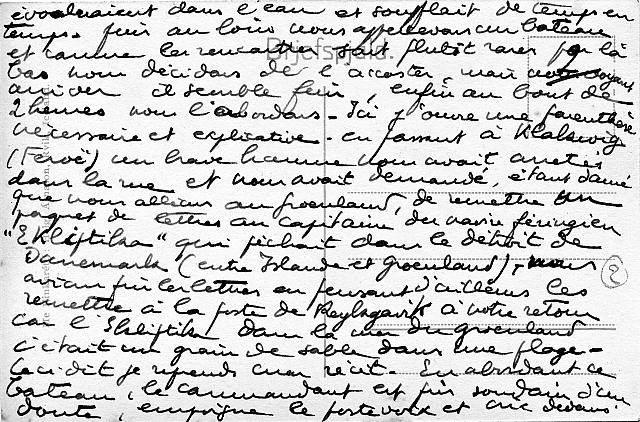 évoluaient dans l'eau et soufflait de temps en
temps. Puis au loin nous appercevons un bateau
et comme les rencontres sont plutôt rares par là
bas nous décidons de l'accoster, mais nous voyant
arriver il semble fuir, enfin au bout de
2 heures nous l'abordons - Ici j'ouvre une parenthèse
nécessaire et explicative - en passant à Klaksvig
(Feroë) un brave homme nous avait arretés
dans la rue et nous avait demandé, étant donné
que nous allions au Groenland, de remettre un
paquet de lettres au capitaine du navire féringien
"Ekliptika" qui pêchait dans le détroit de
Danemark (entre Islande et Groenland), nous
avions pris les lettres en pensant d'ailleurs les
remettre à la poste de Reykjavik à notre retour
car l'Ekliptika dans la mer du groenland
c'était un grain de sable dans une plage -
Ceci dit je reprends mon récit - En abordant ce
bateau, le commandant est pris soudain d'un
doute, empoigne le porte voix et crie dedans :
Briefspjald.
2